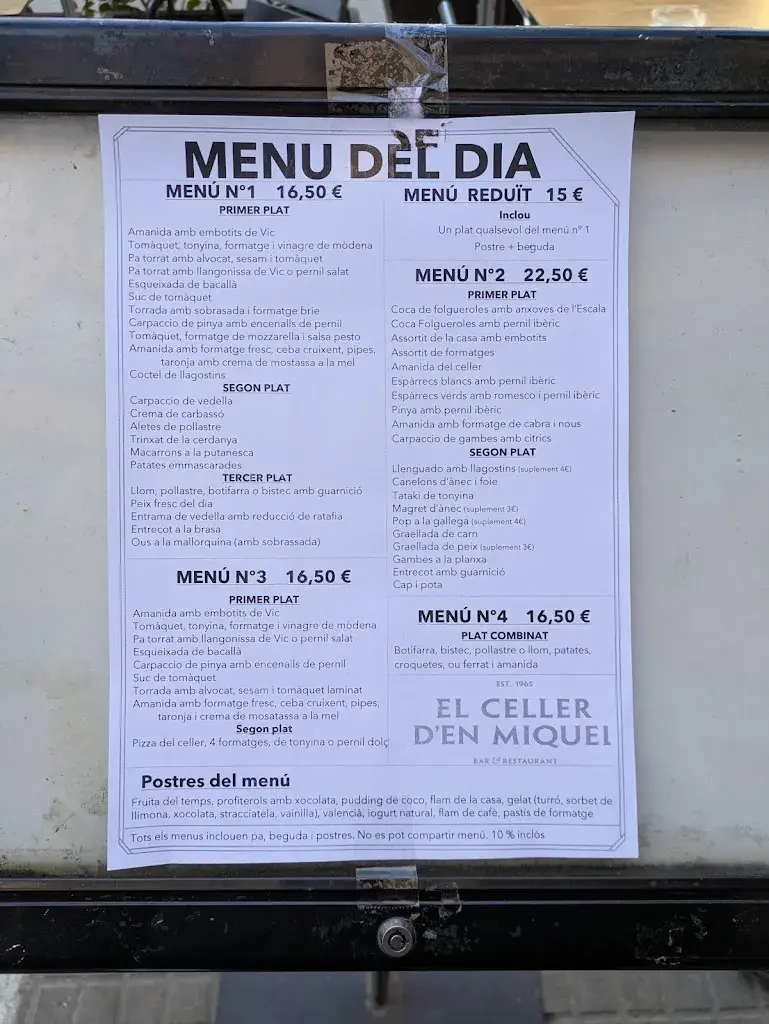 MENU DEL DIA
MENÚ Nº1 16,50 €
PRIMER PLAT
Amanida amb embotits de Vic
Tomàquet, tonyina, formatge i vinagre de mòdena
Pa torrat amb alvocat, sesam i tomàquet
Pa torrat amb llangonissa de Vic o pernil salat
Esqueixada de bacallà
Suc de tomàquet
Torrada amb sobrasada i formatge brie
Carpaccio de pinya amb encenalls de pernil
Tomàquet, formatge de mozzarella i salsa pesto
Amanida amb formatge fresc, ceba cruixent, pipes,
taronja amb crema de mostassa a la mel
Coctel de llagostins
SEGON PLAT
Carpaccio de vedella
Crema de carbassó
Aletes de pollastre
Trinxat de la cerdanya
Macarrons a la putanesca
Patates emmascarades
TERCER PLAT
Llom, pollastre, botifarra o bistec amb guarnició
Peix fresc del dia
Entrama de vedella amb reducció de ratafia
Entrecot a la brasa
Ous a la mallorquina (amb sobrassada)
MENÚ Nº3 16,50 €
PRIMER PLAT
Amanida amb embotits de Vic
Tomàquet, tonyina, formatge i vinagre de mòdena
Pa torrat amb llangonissa de Vic o pernil salat
Esqueixada de bacallà
Carpaccio de pinya amb encenalls de pernil
Suc de tomàquet
Torrada amb alvocat, sesam i tomàquet laminat
Amanida amb formatge fresc, ceba cruixent, pipes,
taronja i crema de mosatassa a la mel
Segon plat
Pizza del celler, 4 formatges, de tonyina o pernil dolç
MENÚ REDUÏT 15 €
Inclou
Un plat qualsevol del menú nº 1
Postre + beguda
MENÚ Nº2 22,50 €
PRIMER PLAT
Coca de folgueroles amb anxoves de l'Escala
Coca Folgueroles amb pernil ibèric
Assortit de la casa amb embotits
Assortit de formatges
Amanida del celler
Espàrrecs blancs amb pernil ibèric
Espàrrecs verds amb romesco i pernil ibèric
Pinya amb pernil ibèric
Amanida amb formatge de cabra i nous
Carpaccio de gambes amb citrics
SEGON PLAT
Llenguado amb llagostins (suplement 4€)
Canelons d'ànec i foie
Tataki de tonyina
Magret d'ànec (suplement 3€)
Pop a la gallega (suplement 4€)
Graellada de carn
Graellada de peix (suplement 3€)
Gambes a la planxa
Entrecot amb guarnició
Cap i pota
MENÚ Nº4 16,50 €
PLAT COMBINAT
Botifarra, bistec, pollastre o llom, patates,
croquetes, ou ferrat i amanida
EST. 1965
EL CELLER
D'EN MIQUEL
BAR & RESTAURANT
Postres del menú
Fruita del temps, profiterols amb xocolata, pudding de coco, flam de la casa, gelat (turró, sorbet de
llimona, xocolata, stracciatela, vainilla), valencià, iogurt natural, flam de cafè, pastis de formatge
Tots els menus inclouen pa, beguda i postres. No es pot compartir menú. 10 % inclòs